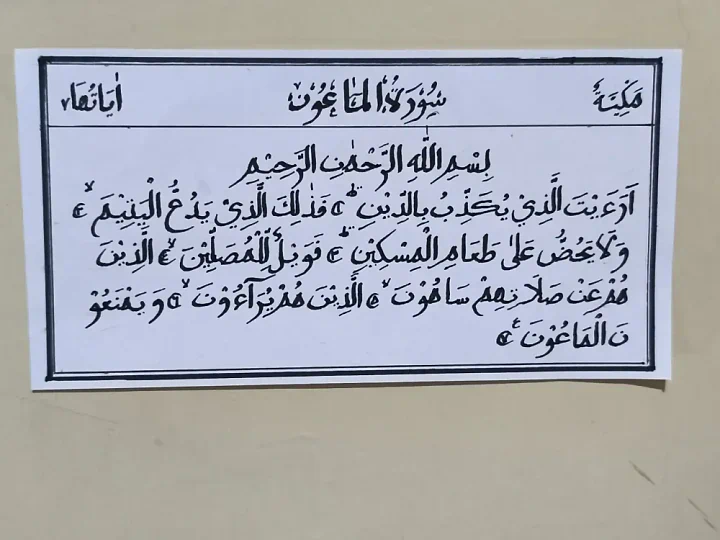 مَكِّيَّةٌ سُوْرَةُ الْمَاعُوْنِ اٰيَاتُهَا ٧
بِسْمِ اللّٰهِ الرَّحْمٰنِ الرَّحِيْمِ
اَرَءَيْتَ الَّذِيْ يُكَذِّبُ بِالدِّيْنِ ؕ فَذٰلِكَ الَّذِيْ يَدُعُّ الْيَتِيْمَ ۙ
وَلَا يَحُضُّ عَلٰى طَعَامِ الْمِسْكِيْنِ ؕ فَوَيْلٌ لِّلْمُصَلِّيْنَ ۙ الَّذِيْنَ
هُمْ عَنْ صَلَاتِهِمْ سَاهُوْنَ ۙ الَّذِيْنَ هُمْ يُرَآءُوْنَ ۙ وَ يَمْنَعُوْ
نَ الْمَاعُوْنَ